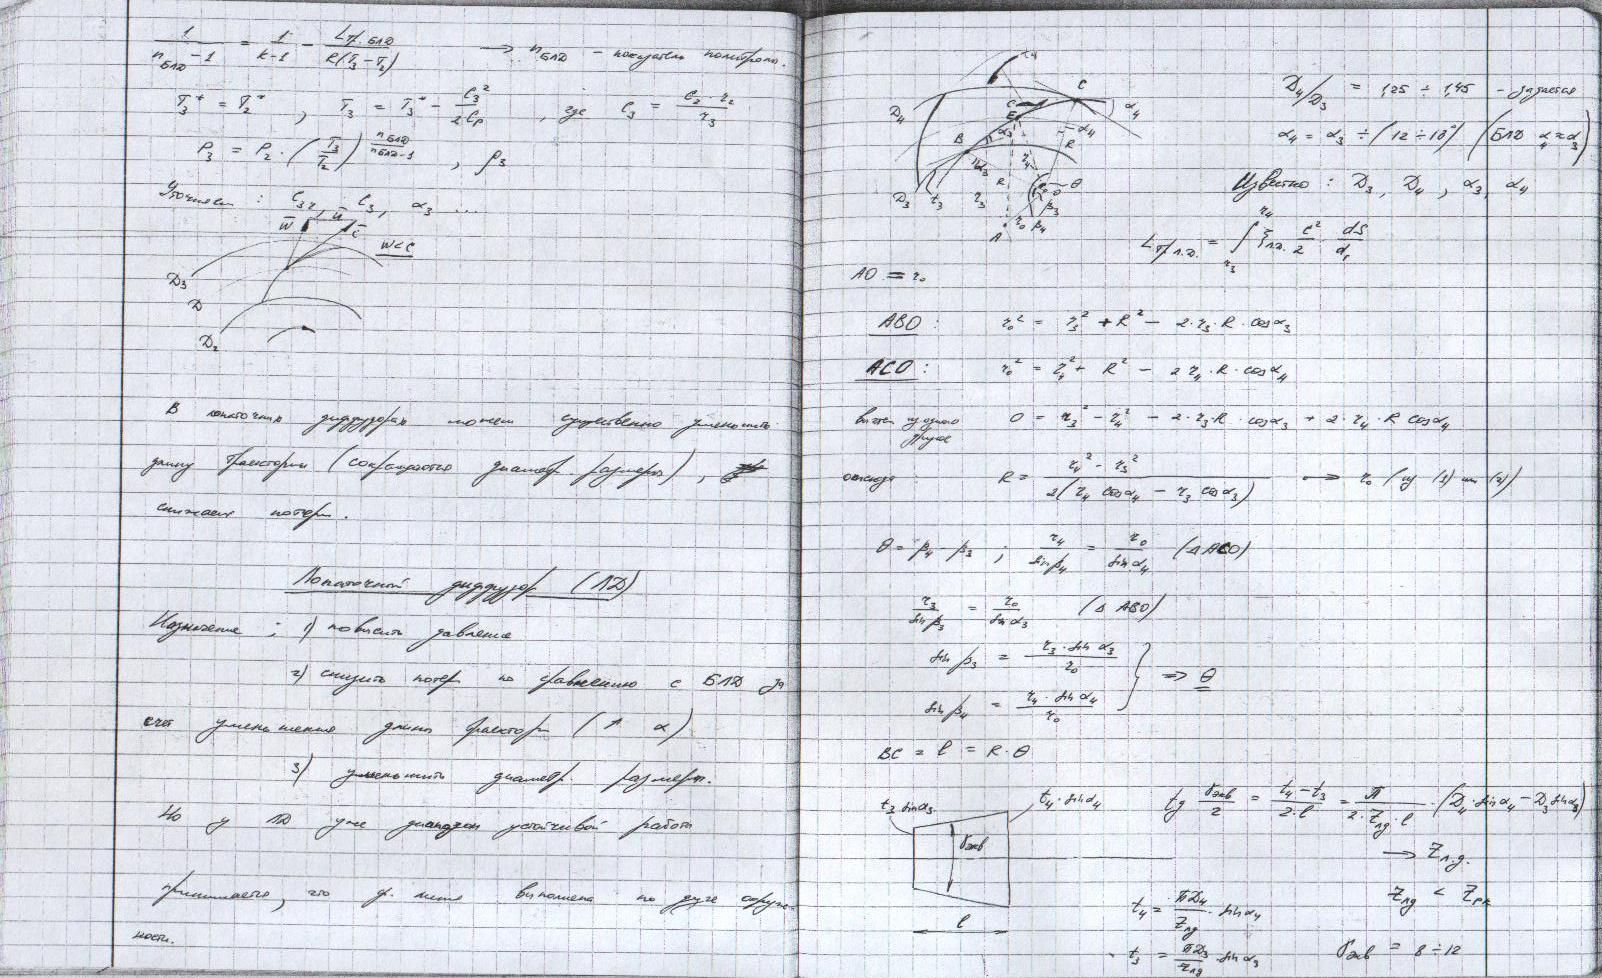 1/(n_БЛД - 1) = 1/(k-1) - L_тр.БЛД/(R(T_3 - T_2)) → n_БЛД - показатель политропы.
T_3* = T_2* , T_3 = T_3* - C_3²/(2C_p) , где C_3 = (C_2 · r_2)/r_3
P_3 = P_2 · (T_3/T_2)^(n_БЛД/(n_БЛД-1)) , ρ_3
Уточняем : C_3r, C_3, α_3 ...
w̄ ū c̄
w<c
D_3
D
D_2
В лопаточных диффузорах можем существенно уменьшить
длину траектории (сокращаются диаметр. размеры) ,
снижаем потери.
Лопаточный диффузор (ЛД)
Назначение : 1) повысить давление
2) снизить потери по сравнению с БЛД за
счёт уменьшения длины траектории (↑ α)
3) уменьшить диаметр. размеры.
Но у ЛД уже диапазон устойчивой работы
принимается, что ср. линия выполнена по дуге окруж-
ности.
D_4 C α_4
B α_3 α_4 R
D_3 t_3 r_3 R r_4 O θ
A r_0 β_4 β_3
D_4/D_3 = 1,25 ÷ 1,45 - задается
α_4 = α_3 ÷ (12 ÷ 18°) (БЛД α_4 ≈ α_3)
Известно : D_3, D_4, α_3, α_4
L_тр л.д. = ∫_{r_3}^{r_4} ξ_лд · c²/2 · dS/d_г
AO = r_0
ABO : r_0² = r_3² + R² - 2·r_3·R·cosα_3
ACO : r_0² = r_4² + R² - 2r_4·R·cosα_4
вычтем из одного другое 0 = r_3² - r_4² - 2·r_3·R·cosα_3 + 2·r_4·R cosα_4
отсюда R = (r_4² - r_3²)/(2(r_4 cosα_4 - r_3 cosα_3)) → r_0 (из (1) или (2))
θ = β_4 - β_3 ; r_4/sinβ_4 = r_0/sinα_4 (Δ ACO)
r_3/sinβ_3 = r_0/sinα_3 (Δ ABO)
sinβ_3 = (r_3 · sinα_3)/r_0
sinβ_4 = (r_4 · sinα_4)/r_0 } ⇒ θ
BC = l = R·θ
t_3 sinα_3 t_4·sinα_4
γ_экв
l
tg γ_экв/2 = (t_4 - t_3)/(2·l) = π/(2·Z_лд·l) · (D_4·sinα_4 - D_3 sinα_3)
→ Z_л.д.
Z_лд < Z_рк
t_4 = πD_4/Z_лд · sinα_4
t_3 = πD_3/Z_лд · sinα_3
γ_экв = 8 ÷ 12